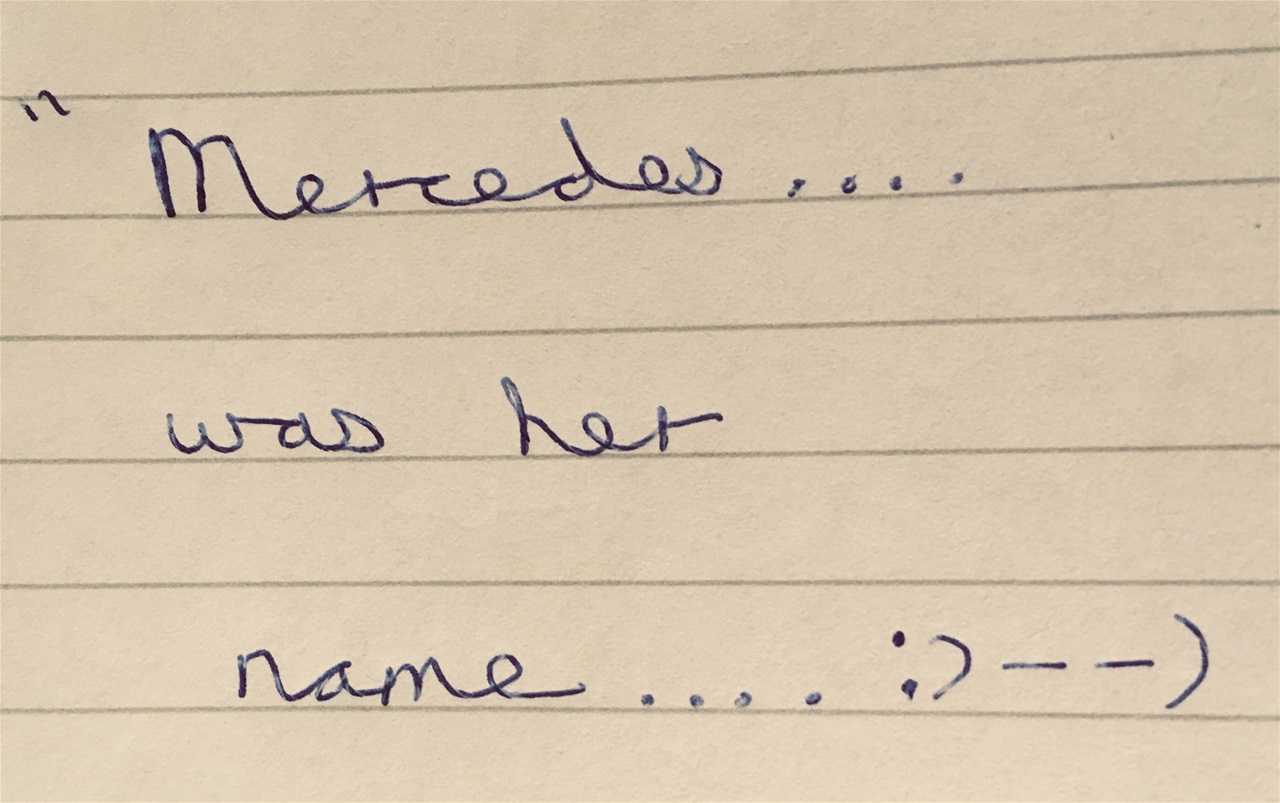 " Mercedes ....
was her
name .... :)--)